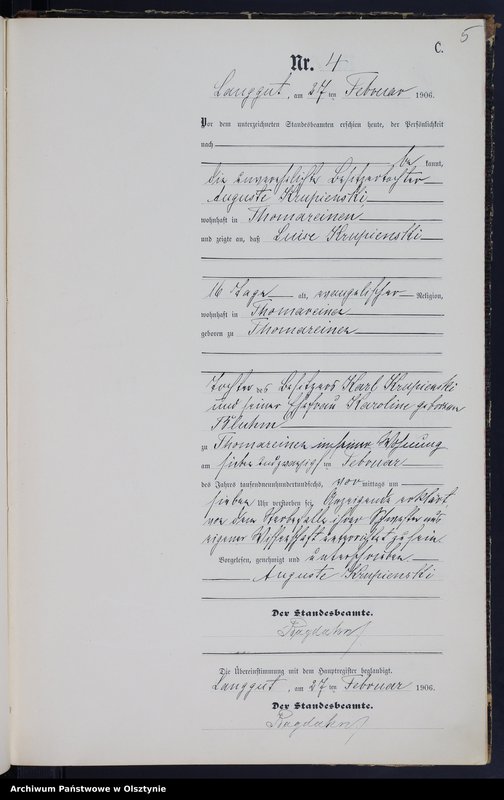 5
C.
Nr. 4
Langgut, am 27 ten Februar 1906.
Vor dem unterzeichneten Standesbeamten erschien heute, der Persönlichkeit
nach
be kannt,
die unverehelichte Besitzertochter
Auguste Krupienski
wohnhaft in Thomareinen
und zeigte an, daß Luise Krupienski
16 Tage alt, evangelischer Religion,
wohnhaft in Thomareinen
geboren zu Thomareinen
Tochter des Besitzers Karl Krupienski
und seiner Ehefrau Karoline geborenen
zu Thomareinen in seiner Wohnung
am sieben und zwanzigsten Februar
des Jahres tausendneunhundertundsechs, vor mittags um
sieben Uhr verstorben sei. Anzeigende erklärt
von dem Sterbefalle ihrer Schwester aus
eigener Wissenschaft unterrichtet zu sein
Vorgelesen, genehmigt und unterschrieben
Auguste Krupienski
Der Standesbeamte.
Kagdahn
Die Übereinstimmung mit dem Hauptregister beglaubigt.
Langgut, am 27 ten Februar 1906.
Der Standesbeamte.
Kagdahn
Archiwum Państwowe w Olsztynie